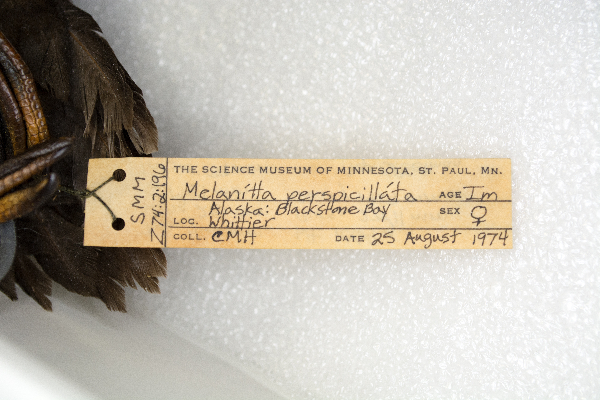 SMM
Z74:2:196
THE SCIENCE MUSEUM OF MINNESOTA, ST. PAUL, MN.
Melanítta perspicilláta AGE Im
Alaska: Blackstone Bay SEX ♀
LOC. Whittier
COLL. CMH DATE 25 August 1974